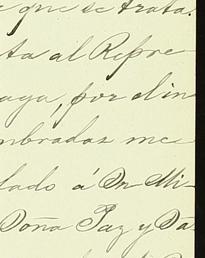 e que se trata.
ta al Repre
aga, por din
mbradas me
lado á Dn Mi-
Doña Paz y Da